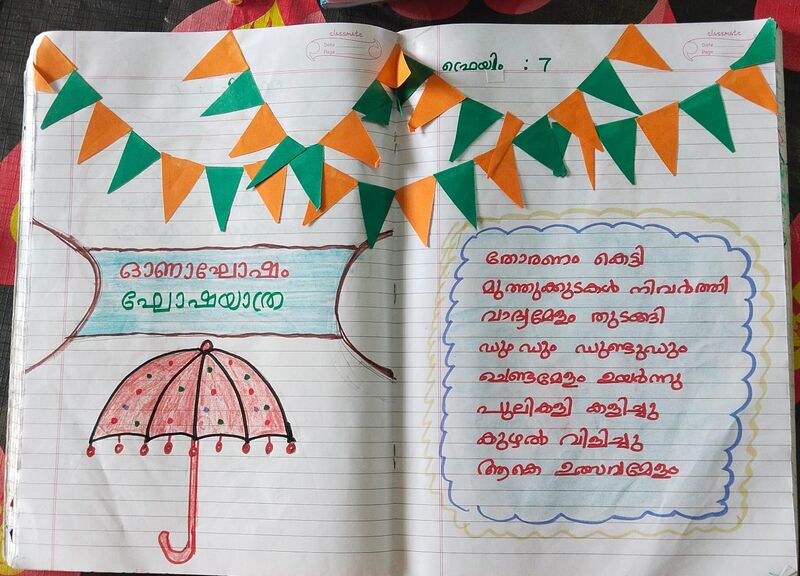 classmate
Date
Page
ഓണാഘോഷം
ഘോഷയാത്ര
classmate
Date
Page
ഫ്രെയിം : 7
തോരണം കെട്ടി
മുത്തുക്കുടകൾ നിവർത്തി
വാദ്യമേളം തുടങ്ങി
ഡും ഡും ഡുണ്ടുഡും
ചെണ്ടമേളം ഉയർന്നു
പുലികളി കളിച്ചു
കുഴൽ വിളിച്ചു
ആകെ ഉത്സവമേളം